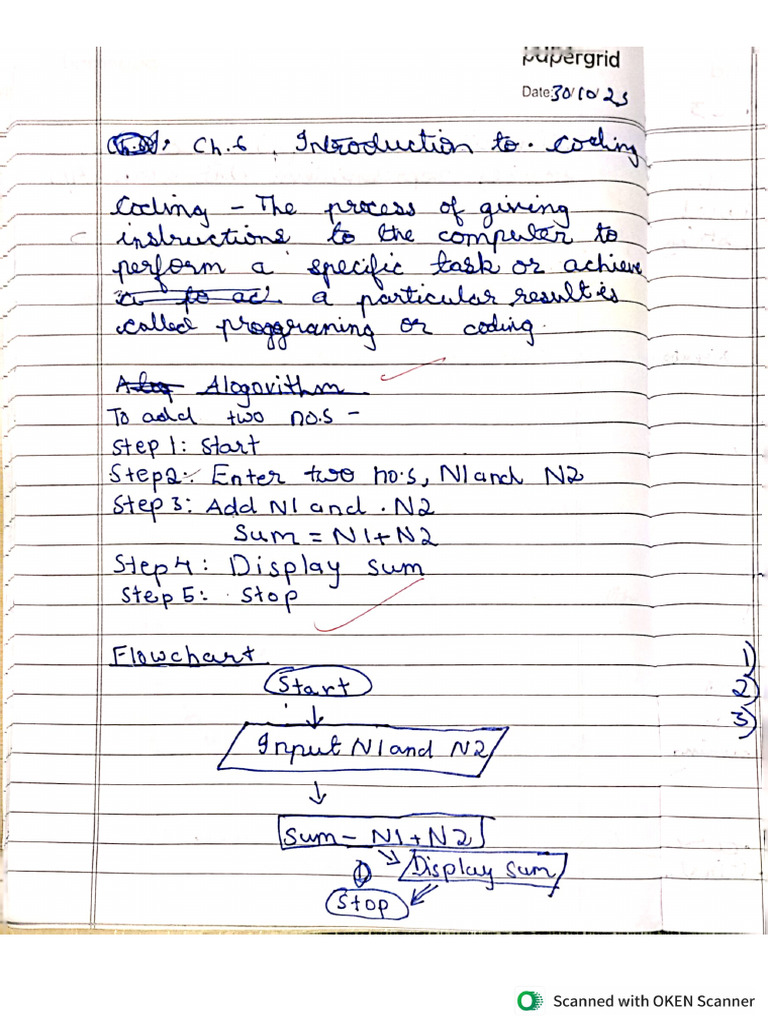 papergrid
Date: 30/10/25
Ch.6, Introduction to. coding
Coding - The process of giving
instructions to the computer to
perform a specific task or achieve
a particular result is
called proggraming or coding.
Alogorithm
To add two no.s -
Step 1: Start
Step2: Enter two no.s, N1 and N2
Step 3: Add N1 and . N2
Sum = N1+N2
Step 4: Display sum
Step 5: Stop
Flowchart
Start
1)
2)
3)
Input N1 and N2
Sum - N1+N2
Display sum
Stop
Scanned with OKEN Scanner